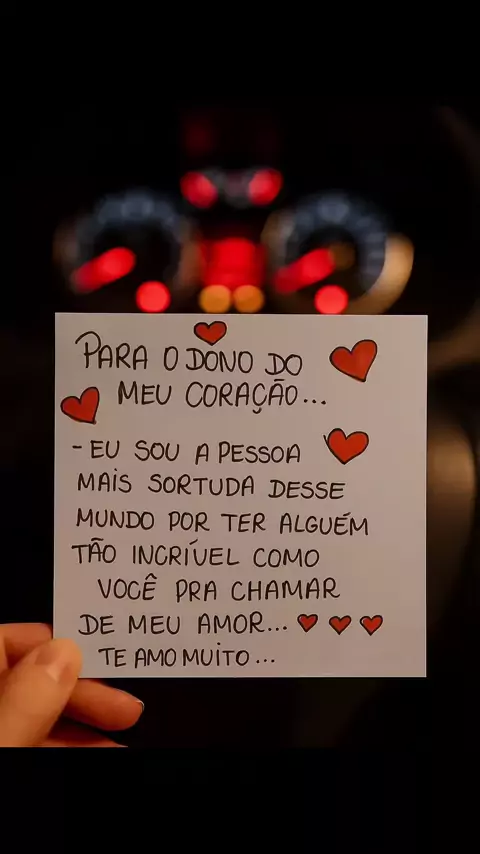 PARA O DONO DO
MEU CORAÇÃO...
- EU SOU A PESSOA
MAIS SORTUDA DESSE
MUNDO POR TER ALGUÉM
TÃO INCRÍVEL COMO
VOCÊ PRA CHAMAR
DE MEU AMOR...
TE AMO MUITO...